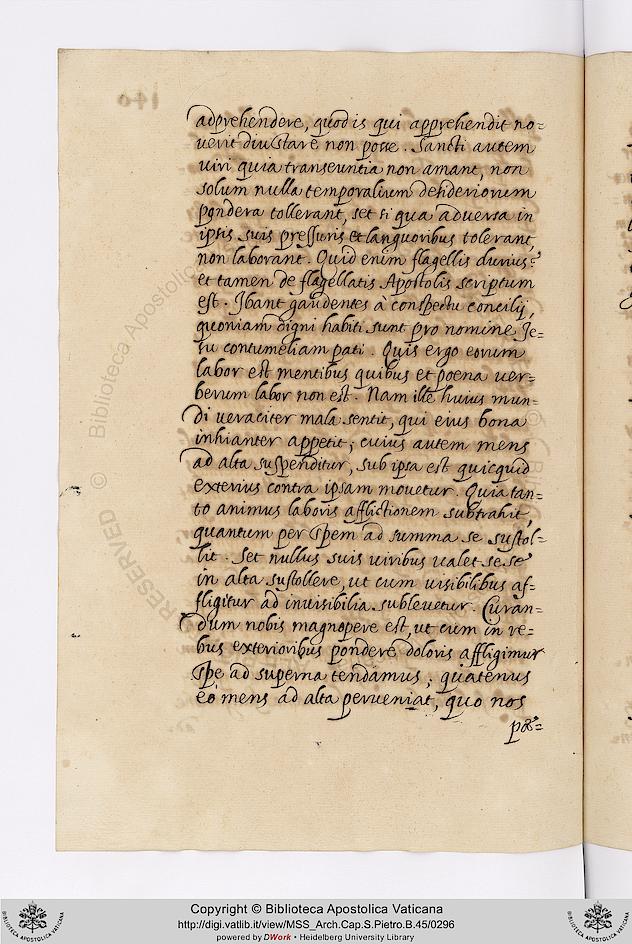 adprehendere, quod is qui apprehendit no=
verit diu stare non posse. Sancti autem
viri quia transeuntia non amant, non
solum nulla temporalium desideriorum
pondera tollerant, set si qua adversa in
ipsis suis pressuris et languoribus tolerant,
non laborant. Quid enim flagellis durius?
et tamen de flagellatis Apostolis scriptum
est. Ibant gaudentes à conspectu concilij,
quoniam digni habiti sunt pro nomine Je=
su contumeliam pati. Quis ergo eorum
labor est mentibus quibus et poena ver=
berum labor non est. Nam ille huius mun=
di veraciter mala sentit, qui eius bona
inhianter appetit; cuius autem mens
ad alta suspenditur, sub ipsa est quicquid
exterius contra ipsam movetur. Quia tan=
to animus laboris afflictionem subtrahit,
quantum per spem ad summa se sustol=
lit. Set nullus suis viribus valet se se
in alta sustollere, ut cum visibilibus af=
fligitur ad invisibilia sublevetur. Curan=
dum nobis magnopere est, ut cum in re=
bus exterioribus pondere doloris affligimur
spe ad superna tendamus; quatenus
eò mens ad alta perveniat, quo nos
140
© Biblioteca Apostolica
RESERVED
Copyright © Biblioteca Apostolica Vaticana
http://digi.vatlib.it/view/MSS_Arch.Cap.S.Pietro.B.45/0296
powered by DWork • Heidelberg University Library